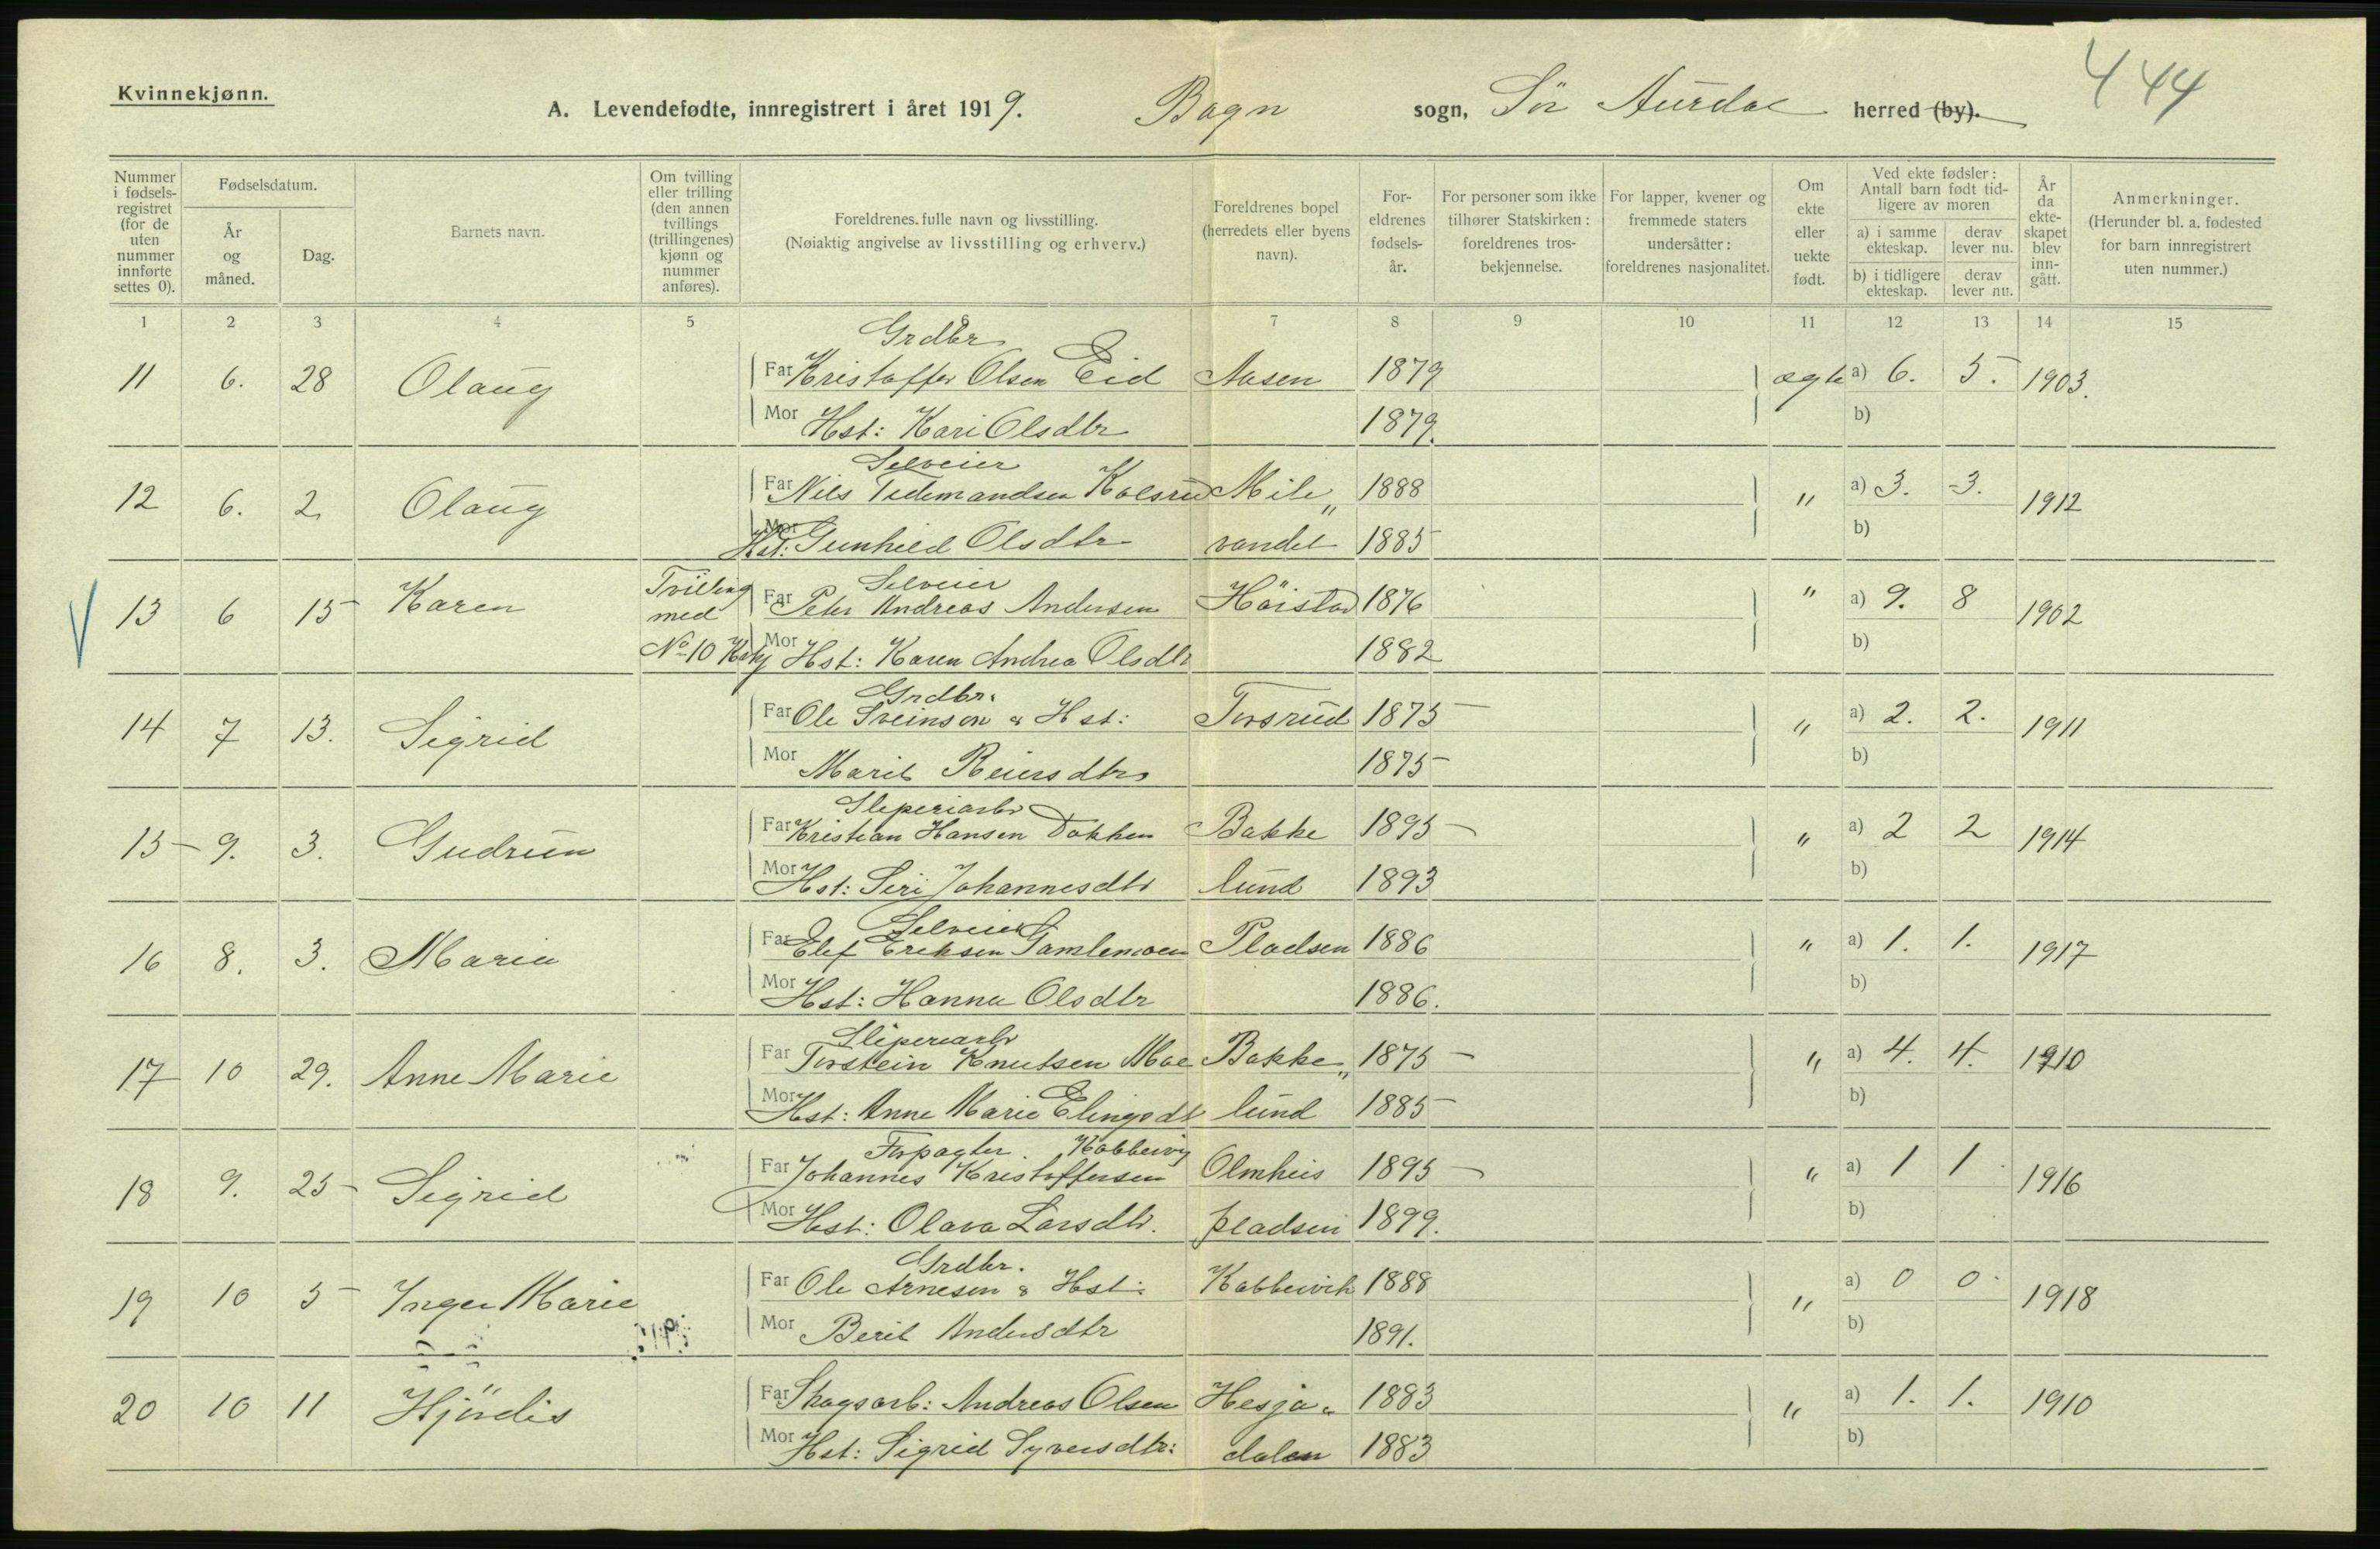 Kvinnekjønn.
444
A. Levendefødte, innregistrert i året 1919. Bagn sogn, Sör Aurdal herred (by).
Nummer i fødsels-registret (for de uten nummer innførte settes 0).
Fødselsdatum.
År og måned.
Dag.
Barnets navn.
Om tvilling eller trilling (den annen tvillings (trillingenes) kjønn og nummer anføres).
Foreldrenes fulle navn og livsstilling.
(Nøiaktig angivelse av livsstilling og erhverv.)
Foreldrenes bopel (herredets eller byens navn).
For-eldrenes fødsels-år.
For personer som ikke tilhører Statskirken: foreldrenes tros-bekjennelse.
For lapper, kvener og fremmede staters undersåtter: foreldrenes nasjonalitet.
Om ekte eller uekte født.
Ved ekte fødsler: Antall barn født tid-ligere av moren
a) i samme ekteskap.
derav lever nu.
b) i tidligere ekteskap.
derav lever nu.
År da ekte-skapet blev inn-gått.
Anmerkninger.
(Herunder bl. a. fødested for barn innregistrert uten nummer.)
1 2 3 4 5 6 7 8 9 10 11 12 13 14 15
Grdbr
11 6. 28 Olaug Far Kristoffer Olsen Eid Aasen 1879 ægte a) 6. 5. 1903.
Mor Hst: Kari Olsdtr 1879. b)
Selveier
12 6. 2 Olaug Far Nils Tidemandsen Kolsrud Mile„ 1888 " a) 3. 3. 1912
Mor Hst: Gunhild Olsdtr vandet 1885 b)
Tvilling Selveier
13 6 15 Karen med Far Peter Andreas Andersen Höistad 1876 " a) 9. 8 1902
No 10 Mor Hst: Karen Andrea Olsdtr 1882 b)
Grdbr.
14 7 13. Sigrid Far Ole Sveinson & Hst: Torsrud 1875 " a) 2. 2. 1911
Mor Marit Reiersdtr 1875 b)
Sliperiarb
15 9. 3. Gudrun Far Kristian Hansen Dokken Bakke 1895 " a) 2 2 1914
Mor Hst: Siri Johannesdtr lund 1893 b)
Selveier
16 8. 3. Maria Far Elef Eriksen Gamlemoen Pladsen 1886 " a) 1. 1. 1917
Mor Hst: Hanna Olsdtr 1886. b)
Sliperiarb
17 10 29. Anne Marie Far Torstein Knutsen Moe Bakke„ 1875 " a) 4. 4. 1910
Mor Hst: Anne Marie Elingsdt lund 1885 b)
Forpagter. Kobbervig
18 9. 25 Sigrid Far Johannes Kristoffersen Olmhus 1895 " a) 1 1 1916
Mor Hst: Olava Larsdtr. pladsen 1899. b)
Grdbr.
19 10 5 Inger Marie Far Ole Arnesen & Hst: Kobbervik 1888 " a) 0 0 1918
Mor Berit Andersdtr 1891. b)
20 10 11 Hjördis Far Skogsarb: Andreas Olsen Hesja„ 1883 " a) 1. 1. 1910
Mor Hst: Sigrid Syversdtr: dalen 1883 b)